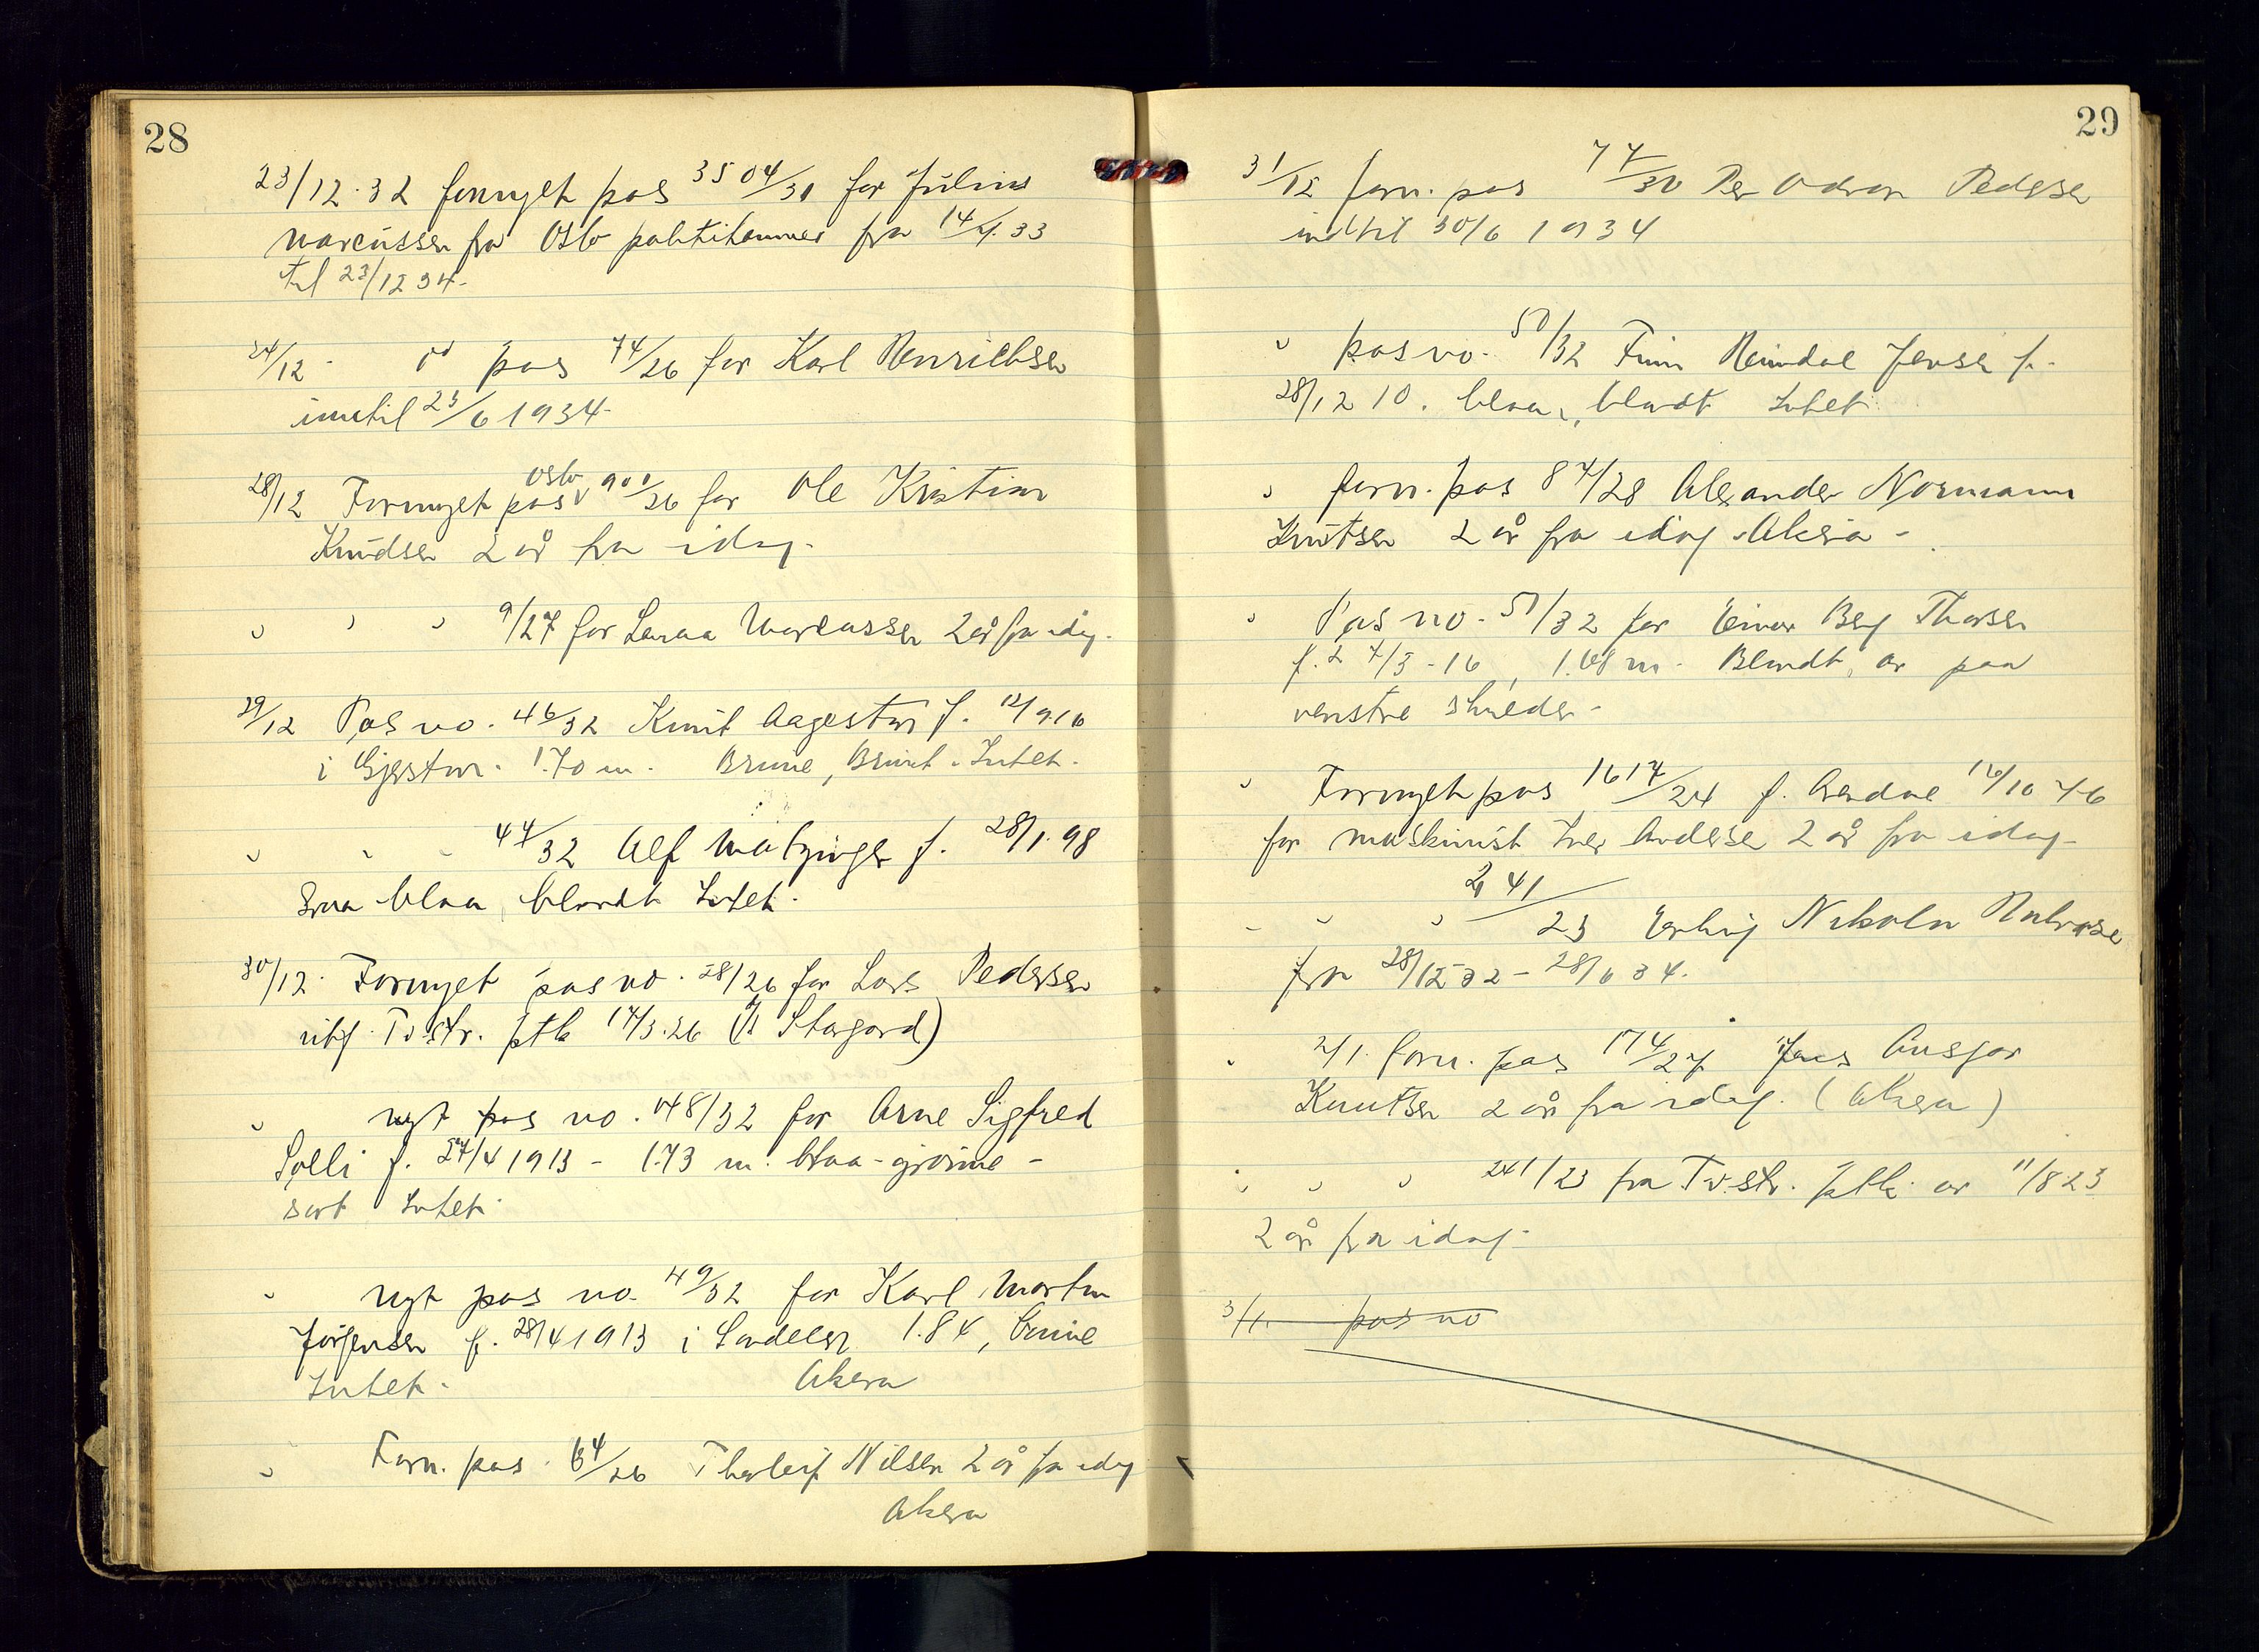 28
23/12. 32 fornyet pas 3504/30 for Julius
Marcussen fra Oslo politikammer fra 14/4. 33
til 23/12 34.
24/12 - pas 74/26 for Karl Henrichsen
inntil 23/6 1934
28/12 Fornyet pas Oslo 900/26 for Ole Kristian
Knudsen 2 år fra idag.
" " " 9/27 for Laura Marcussen 2 år fra idag.
29/12 Pas no. 46/32 Knut Aagestær f. 12/9 16
i Gjerstar. 1.70 m. Brune, Brunt. Intet.
" " " 47/32 Alf f. 28/1. 98
blaa, blondt Intet.
30/12. Fornyet pas no. 28/26 for Lars Pedersen
utst. Tv.str. ptk 17/3. 26 (Stargard)
" nyt pas no. 48/32 for Arne Sigfred
Solli f. 27/4 1913 - 1.73 m. blaa-grønne -
sort Intet.
" Nyt pas no. 49/32 for Karl Martin
Jørgensen f. 28/4 1913 i Sandøen 1.84, brune
Intet. Akera
" Forn. pas. 64/26 Thorleif Nilsen 2 år fra idag
Akera
29
31/12 forn. pas 77/30 Per Odvar Pedersen
indtil 30/6 1934
" pas no. 50/32 Finn Heimdal Jensen f.
28/12 10. blaa, blondt Intet
" forn. pas 87/28 Alexander Normann
Knutsen 2 år fra idag. Akera -
" Pas no. 51/32 for Einar Berg Thorsen
f. 27/3 - 16, 1.68 m. Blondt, ar paa
venstre skulder -
" Fornyet pas 1617/24 f. Arendal 16/10 76
for maskinist Iver Andersen 2 år fra idag.
" " " 241/23 Erling Nikolai Halvorsen
fra 28/12 - 32 - 28/6 34.
" 2/1. forn. pas 174/27 Jens Ansgar
Knutsen 2 år fra idag. (Akera)
" " " 241/23 fra Tv.str. ptk. av 11/8 23
2 år fra idag.
3/1. pas no